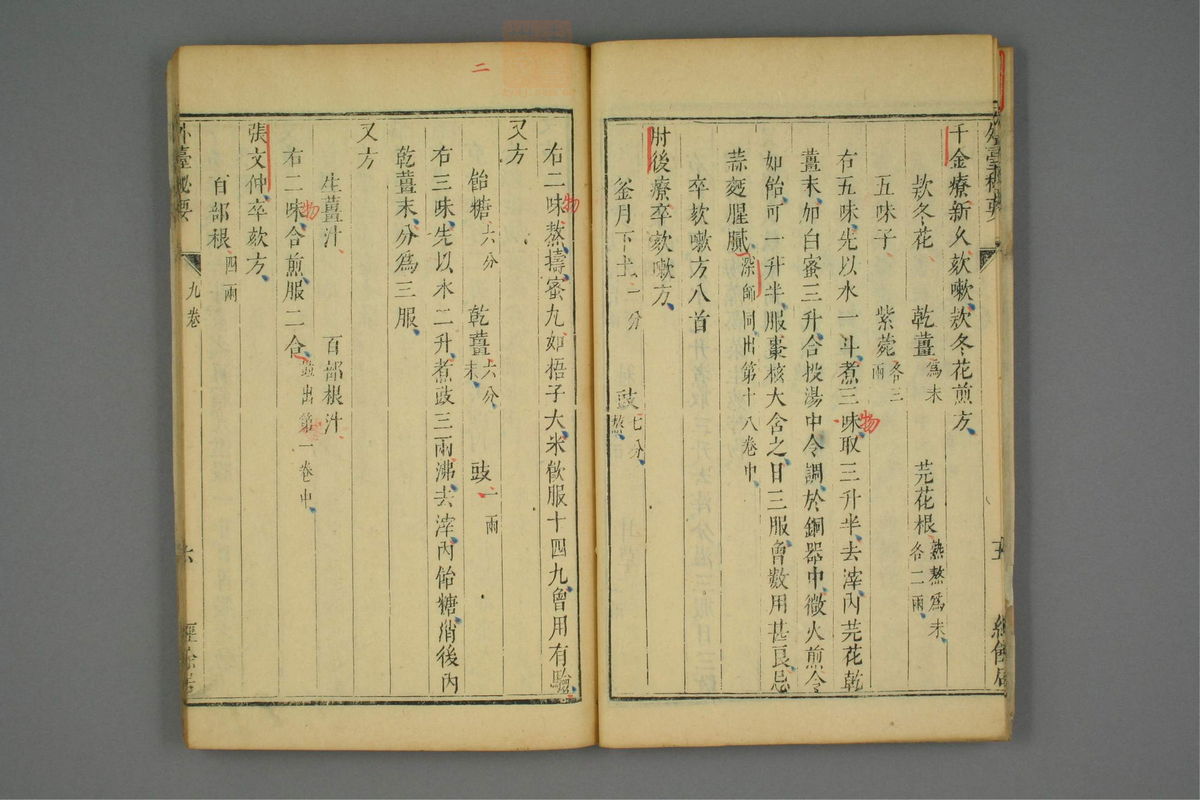 千金療新久欬嗽欵冬花煎方
欵冬花　乾薑爲末　芫花根熬熬爲末各二兩
五味子　紫菀各三兩
右五味先以水一斗煮三味取三升半去滓內芫花乾
薑末加白蜜三升合投湯中令調於銅器中微火煎令
如飴可一升半服棗核大含之日三服曾數用甚良忌
蒜麪腥膩深師同出第十八卷中
卒欬嗽方八首
肘後療卒欬嗽方
釜月下土一分　豉七分熬
右二味熬擣蜜丸如梧子大米飲服十四丸曾用有驗
又方
飴糖六分　乾薑六分末　豉一兩
右三味先以水二升煮豉三兩沸去滓內飴糖消後內
乾薑末分爲三服
又方
生薑汁　百部根汁
右二味合煎服二合並出第一卷中
張文仲卒欬方
百部根四兩
外臺秘要
九卷
六
物
物
物
二